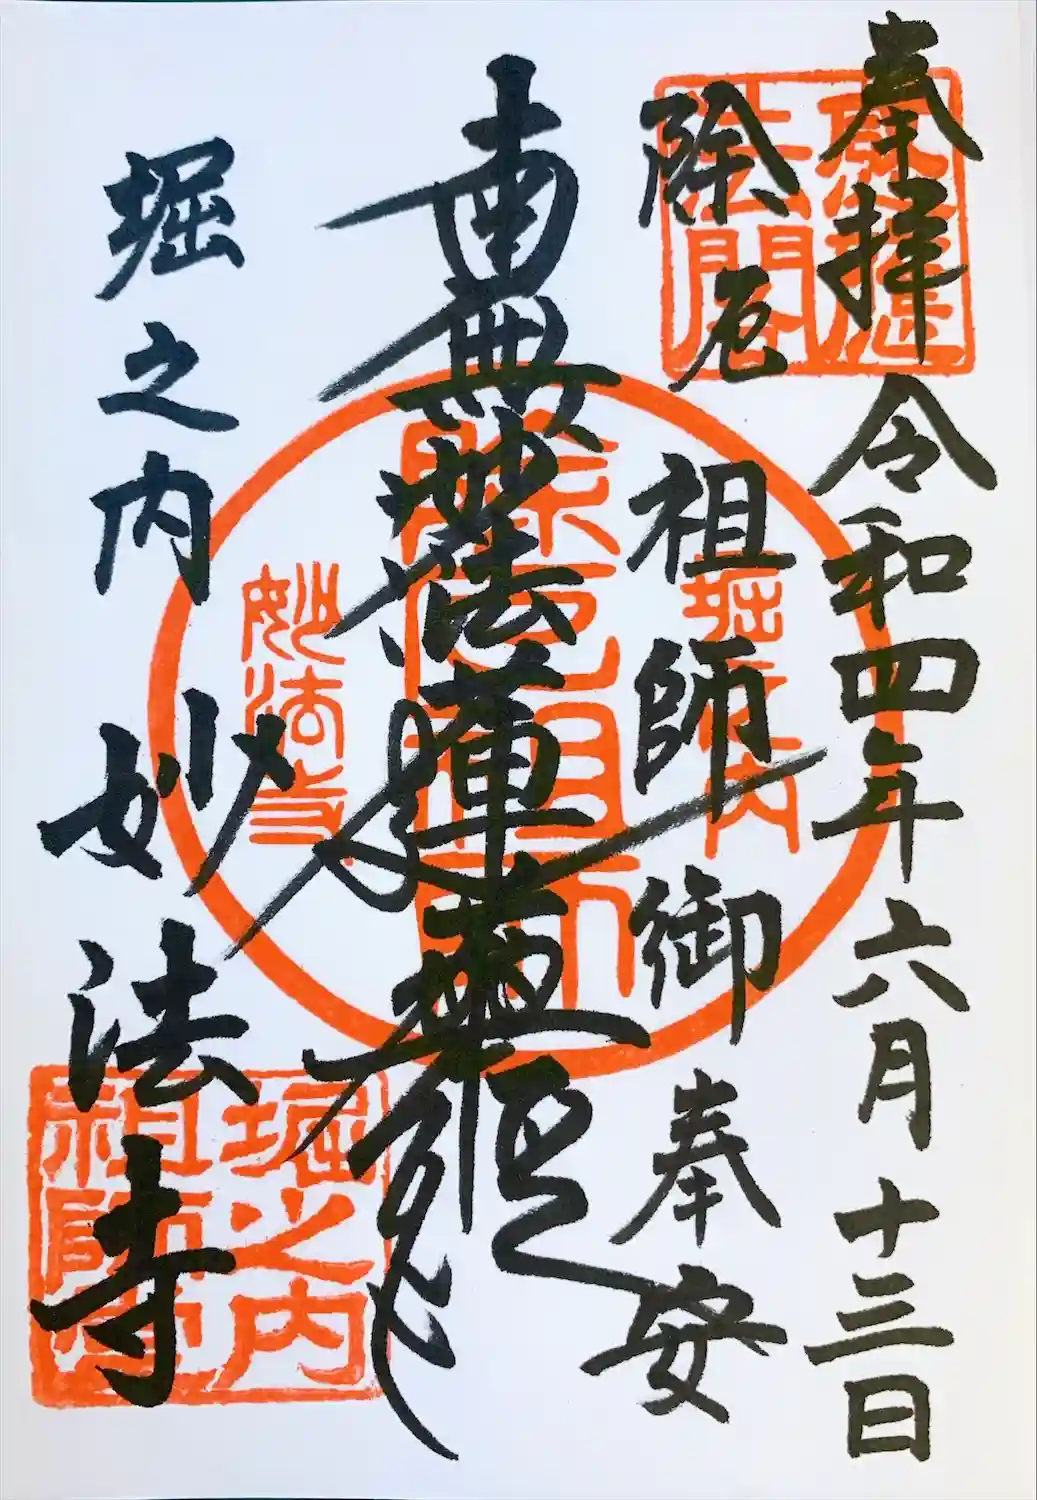 奉拝 令和四年六月十三日
除厄祖師御奉安
南無妙法蓮華経
堀之内 妙法寺
堀之内
除厄祖師
妙法寺
堀之内
祖師堂